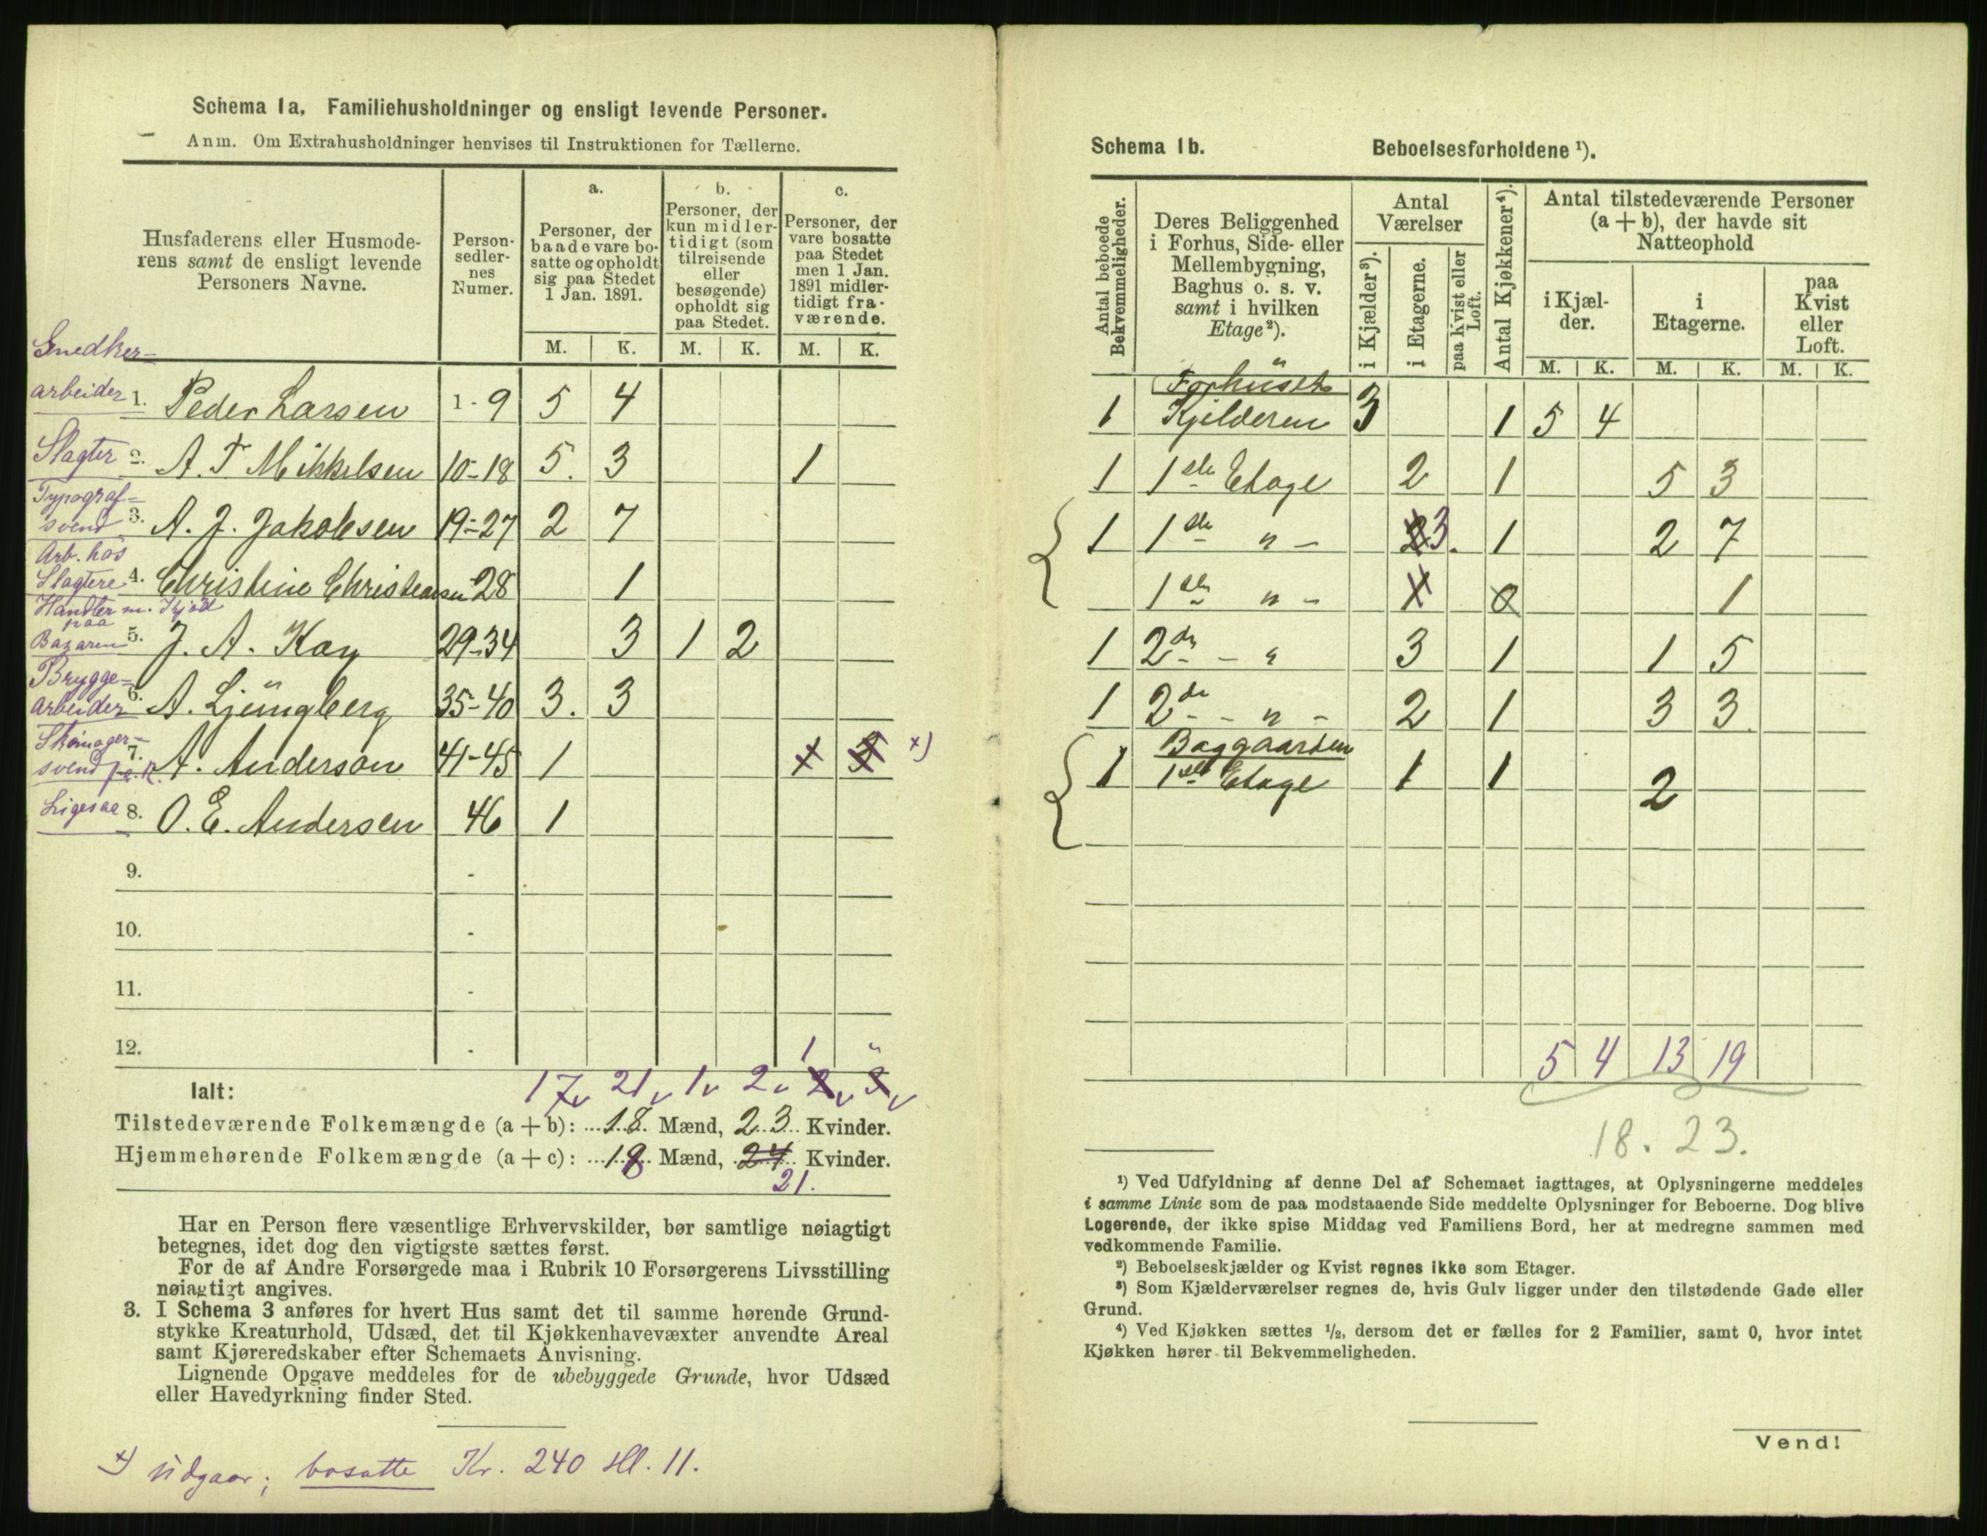 Schema 1a. Familiehusholdninger og ensligt levende Personer.
Anm. Om Extrahusholdninger henvises til Instruktionen for Tællerne.
Husfaderens eller Husmoderens samt de ensligt levende Personers Navne.
Personsedlernes Numer.
a. Personer, der baade vare bosatte og opholdt sig paa Stedet 1 Jan. 1891.
b. Personer, der kun midlertidigt (som tilreisende eller besøgende) opholdt sig paa Stedet.
c. Personer, der vare bosatte paa Stedet men 1 Jan. 1891 midlertidigt fraværende.
M. K. M. K. M. K.
Snedker-
arbeider 1. Peder Larsen 1-9 5 4
Slagter 2. A. T Mikkelsen 10-18 5. 3 1
Typograf-
svend 3. A. J. Jakobsen 19-27 2 7
Arb. hos
Slagtere 4. Christine Christensen 28 1
Handler m. Kjød
paa
Bazaren 5. J. A. Kay 29-34 3 1 2
Brygge-
arbeider 6. A. Ljüngberg 35-40 3. 3
Skomager-
svend 7. A. Anderson 41-45 1 1 3 x)
Ligesaa 8. O. E. Andersen 46 1
9. -
10. -
11. -
12. -
1 "
Ialt: 17 21 1 2 2 3
Tilstedeværende Folkemængde (a + b): 18 Mænd, 23 Kvinder.
Hjemmehørende Folkemængde (a + c): 18 Mænd, 24 Kvinder.
21.
Har en Person flere væsentlige Erhvervskilder, bør samtlige nøiagtigt
betegnes, idet dog den vigtigste sættes først.
For de af Andre Forsørgede maa i Rubrik 10 Forsørgerens Livsstilling
nøiagtigt angives.
3. I Schema 3 anføres for hvert Hus samt det til samme hørende Grund-
stykke Kreaturhold, Udsæd, det til Kjøkkenhavevæxter anvendte Areal
samt Kjøreredskaber efter Schemaets Anvisning.
Lignende Opgave meddeles for de ubebyggede Grunde, hvor Udsæd
eller Havedyrkning finder Sted.
x) üdgaar; bosatte Kr. 240 Hl. 11.
Schema 1b. Beboelsesforholdene ¹).
Antal beboede Bekvemmeligheder.
Deres Beliggenhed i Forhus, Side- eller Mellembygning, Baghus o. s. v. samt i hvilken Etage²).
Antal Værelser
i Kjælder³). i Etagerne. paa Kvist eller Loft.
Antal Kjøkkener⁴).
Antal tilstedeværende Personer (a + b), der havde sit Natteophold
i Kjælder. i Etagerne. paa Kvist eller Loft.
M. K. M. K. M. K.
Forhüset
1 Kjelderen 3 1 5 4
1 1ste Etage 2 1 5 3
1 1ste " - 2 3. 1 2 7
1ste " - 1 0 1
1 2de - " 3 1 1 5
1 2de - " - 2 1 3 3
Baggaarden
1 1ste Etage 1 1 2
5 4 13 19
18. 23.
¹) Ved Udfyldning af denne Del af Schemaet iagttages, at Oplysningerne meddeles
i samme Linie som de paa modstaaende Side meddelte Oplysninger for Beboerne. Dog blive
Logerende, der ikke spise Middag ved Familiens Bord, her at medregne sammen med
vedkommende Familie.
²) Beboelseskjælder og Kvist regnes ikke som Etager.
³) Som Kjælderværelser regnes de, hvis Gulv ligger under den tilstødende Gade eller
Grund.
⁴) Ved Kjøkken sættes ½, dersom det er fælles for 2 Familier, samt 0, hvor intet
Kjøkken hører til Bekvemmeligheden.
Vend!